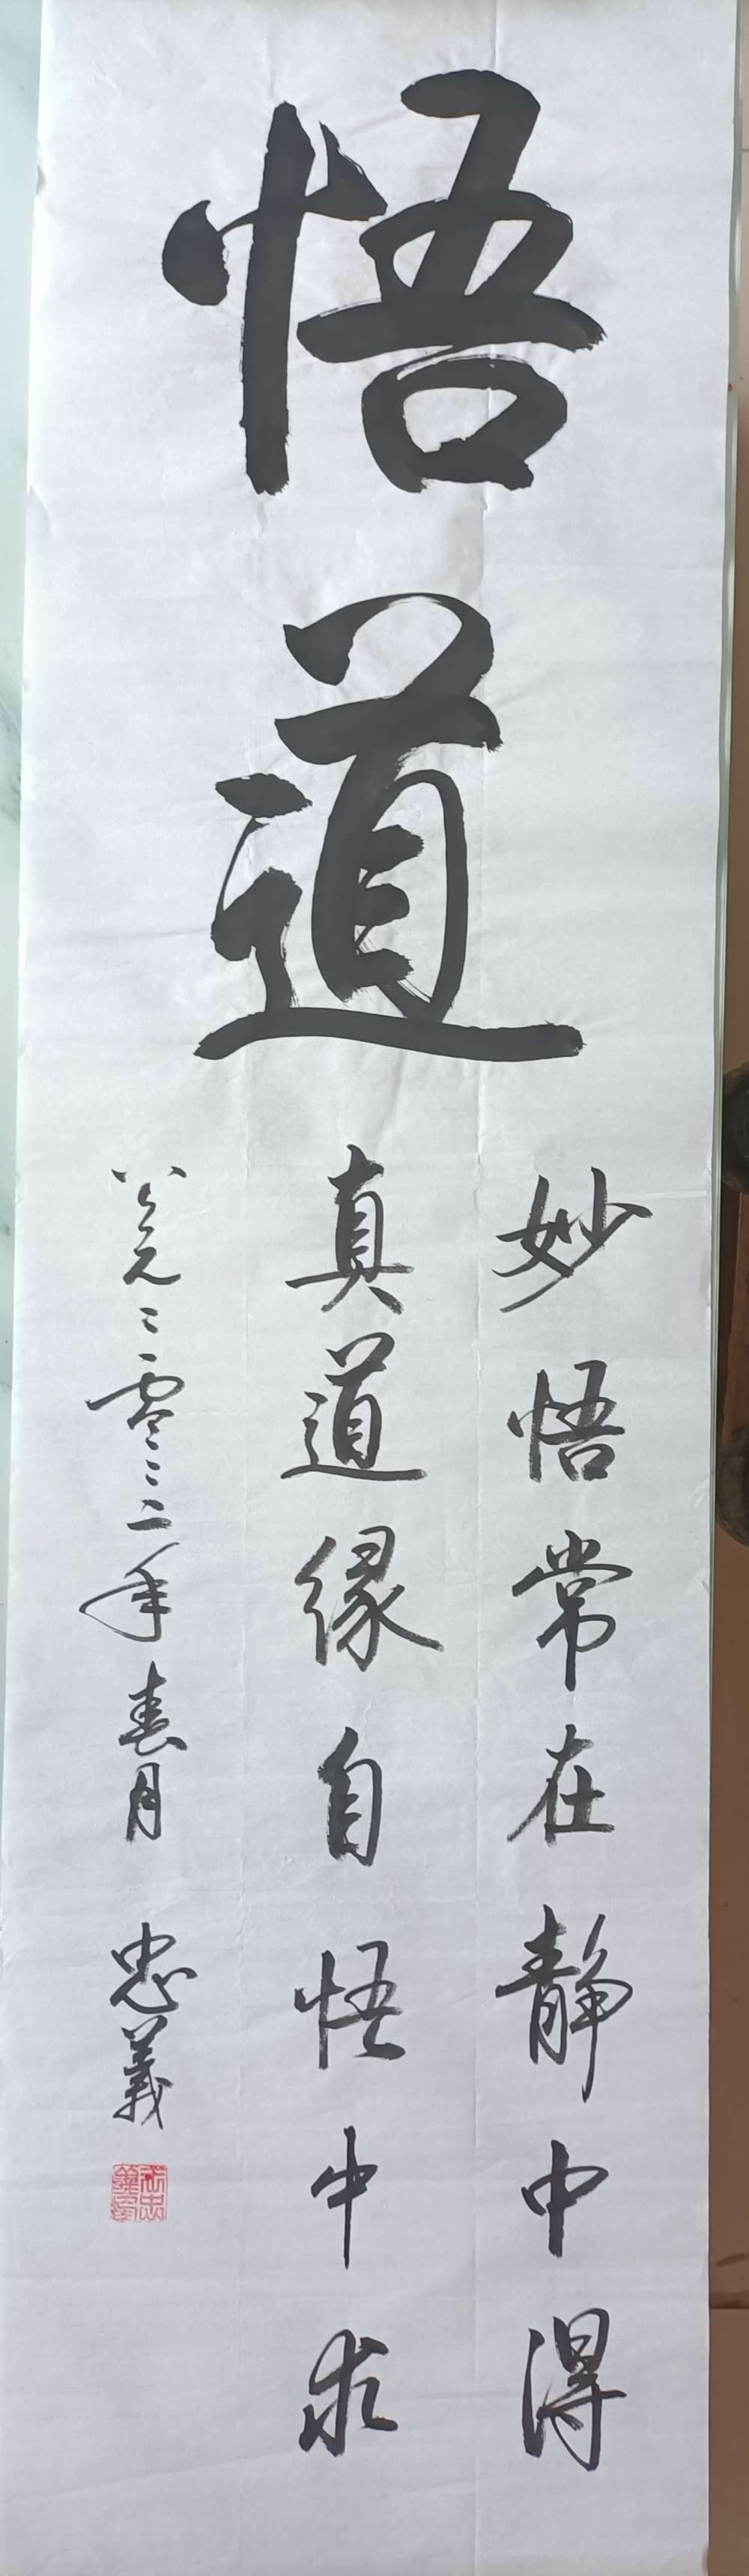 悟道
妙悟常在静中得
真道缘自悟中求
公元二零二二年春月 忠義